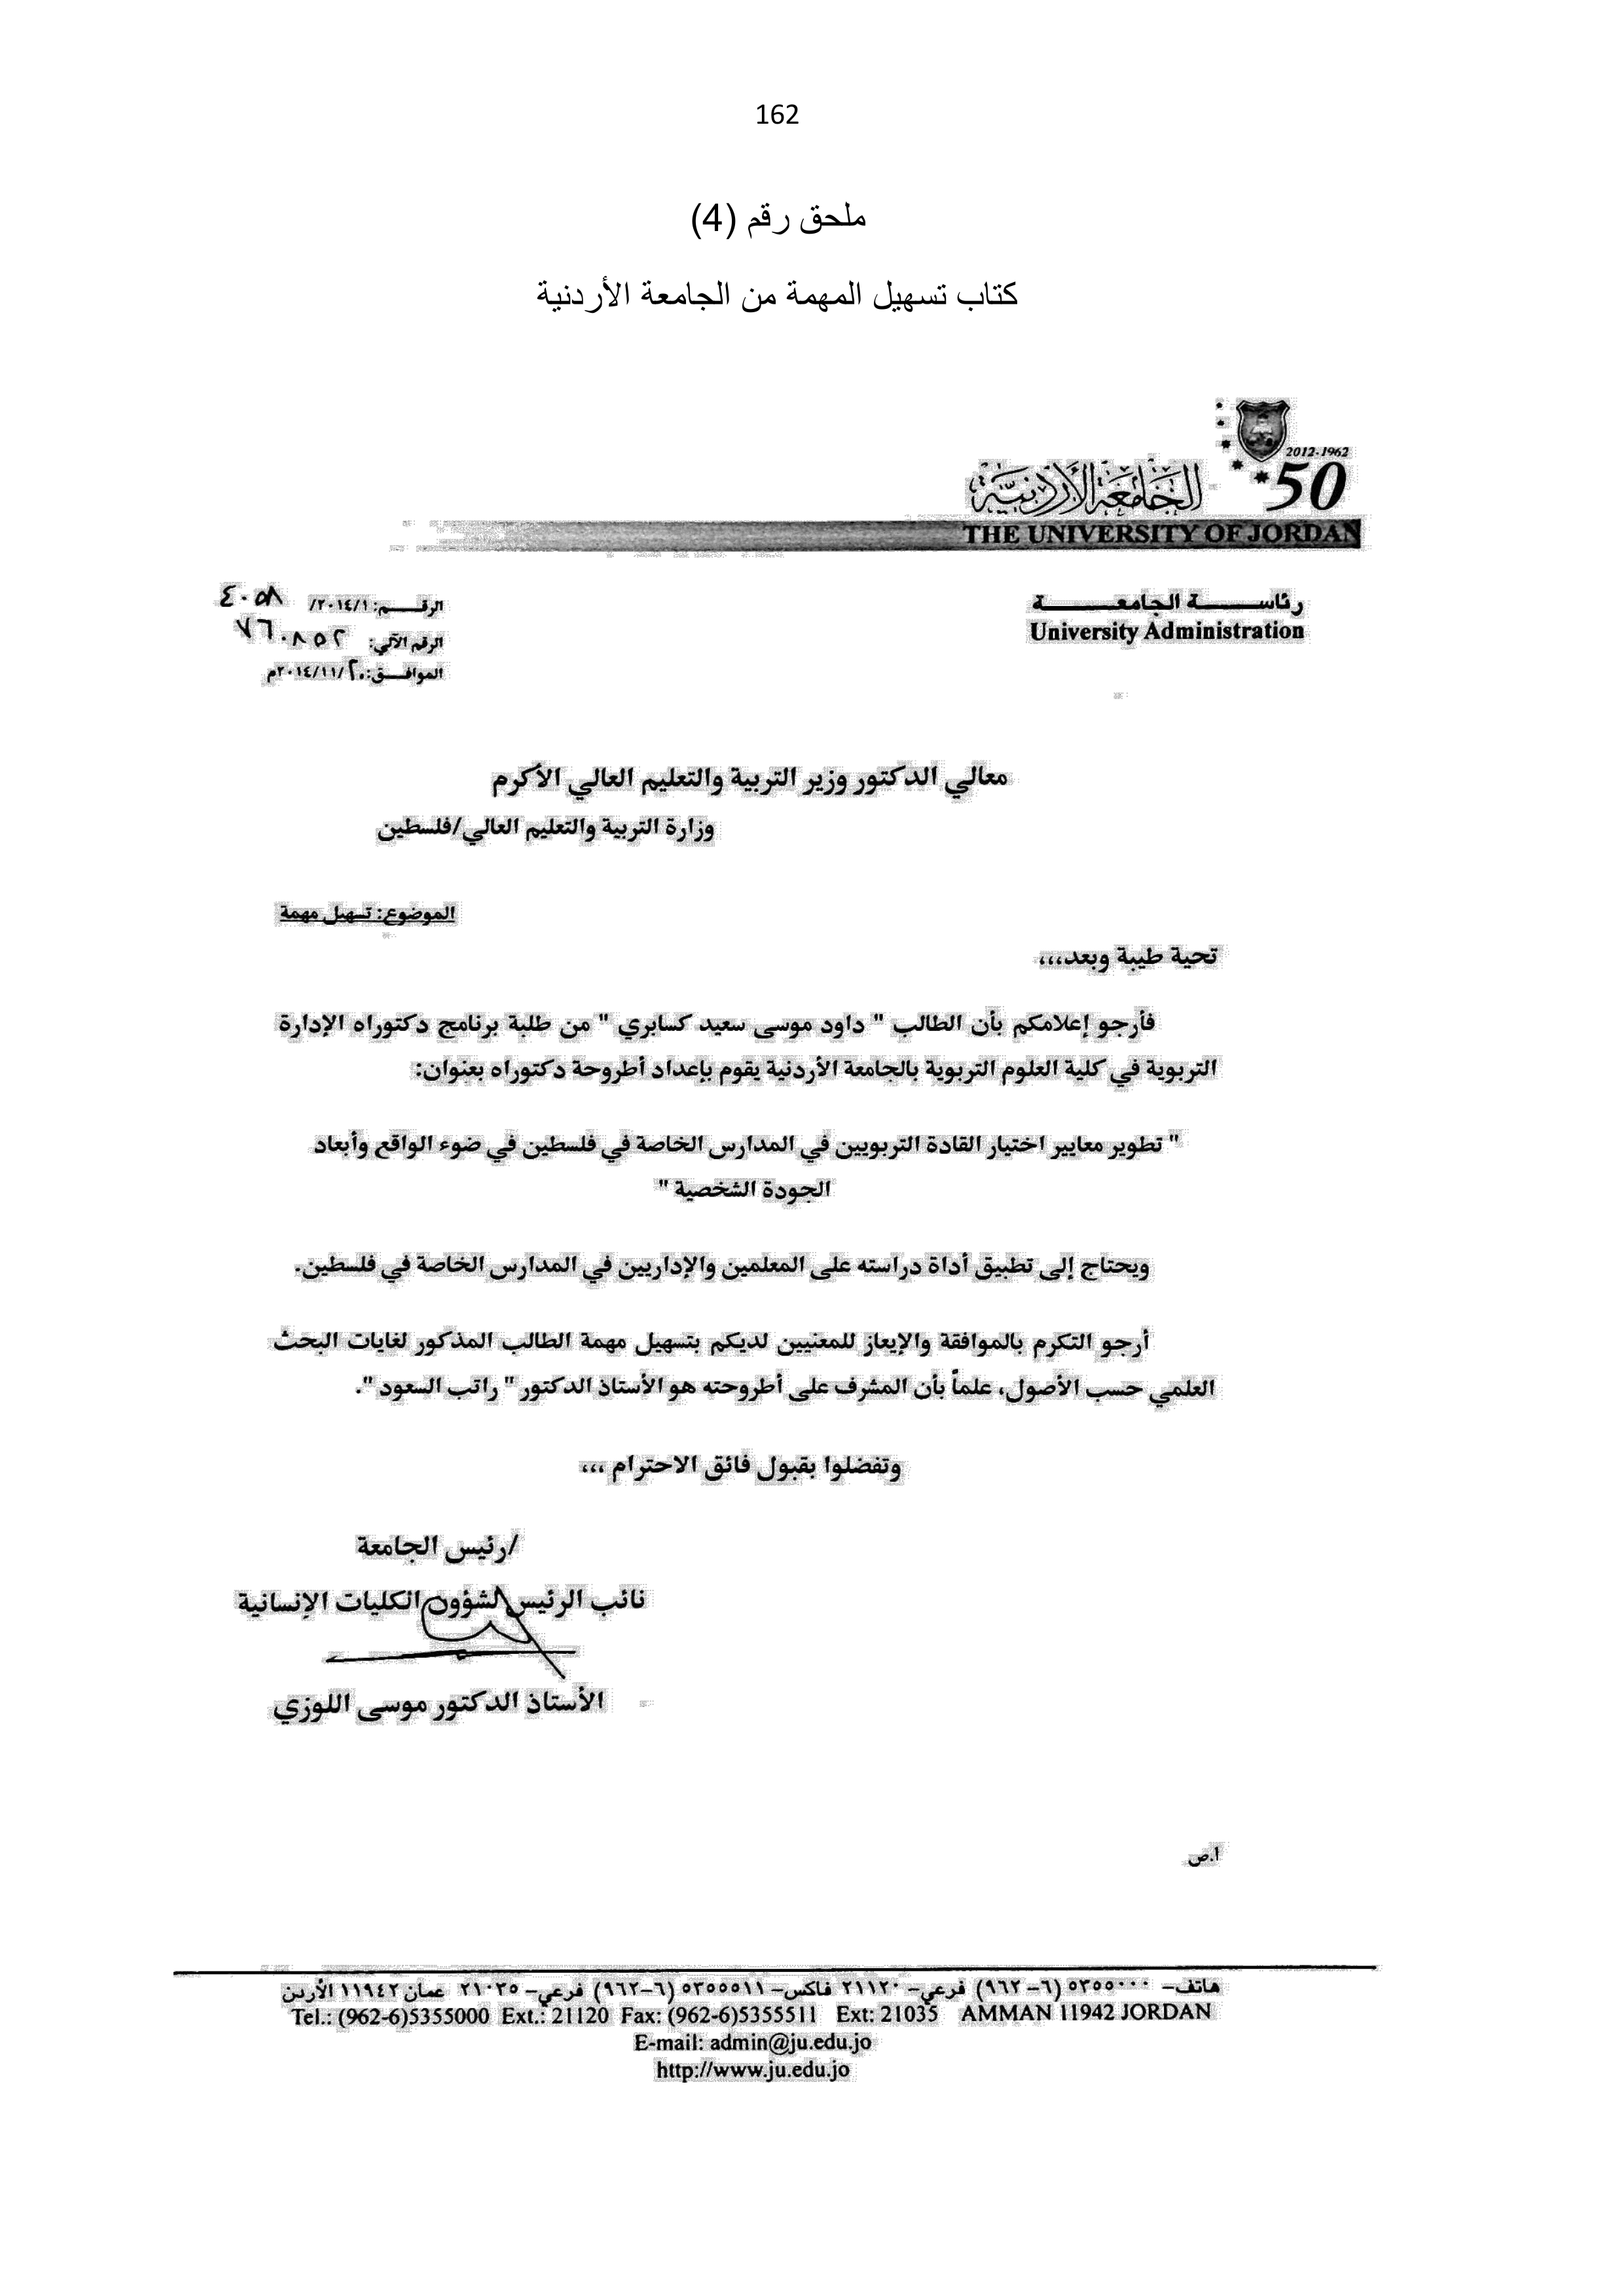 162
ملحق رقم (4)
كتاب تسهيل المهمة من الجامعة الأردنية
2012-1962
50
الجامعة الأردنية
THE UNIVERSITY OF JORDAN
رئاســـــة الجامعـــــــة
University Administration
الرقـــــم: ٢٠١٤/١/ ٤٠٥٨
الرقم الآلي: ٧٦٠٨٥٢
الموافــق: ٢٠١٤/١١/٢٠م
معالي الدكتور وزير التربية والتعليم العالي الأكرم
وزارة التربية والتعليم العالي/فلسطين
الموضوع: تسهيل مهمة
تحية طيبة وبعد،،،
فأرجو إعلامكم بأن الطالب " داود موسى سعيد كسابري " من طلبة برنامج دكتوراه الإدارة
التربوية في كلية العلوم التربوية بالجامعة الأردنية يقوم بإعداد أطروحة دكتوراه بعنوان:
" تطوير معايير اختيار القادة التربويين في المدارس الخاصة في فلسطين في ضوء الواقع وأبعاد
الجودة الشخصية "
ويحتاج إلى تطبيق أداة دراسته على المعلمين والإداريين في المدارس الخاصة في فلسطين.
أرجو التكرم بالموافقة والإيعاز للمعنيين لديكم بتسهيل مهمة الطالب المذكور لغايات البحث
العلمي حسب الأصول، علماً بأن المشرف على أطروحته هو الأستاذ الدكتور " راتب السعود ".
وتفضلوا بقبول فائق الاحترام ،،،
/رئيس الجامعة
نائب الرئيس لشؤون الكليات الإنسانية
الأستاذ الدكتور موسى اللوزي
أ.ص
هاتف– ٥٣٥٥٠٠٠ (٦–٩٦٢) فرعي– ٢١١٢٠ فاكس– ٥٣٥٥٥١١ (٦–٩٦٢) فرعي– ٢١٠٣٥ عمان ١١٩٤٢ الأردن
Tel.: (962-6)5355000 Ext.: 21120 Fax: (962-6)5355511 Ext: 21035 AMMAN 11942 JORDAN
E-mail: admin@ju.edu.jo
http://www.ju.edu.jo